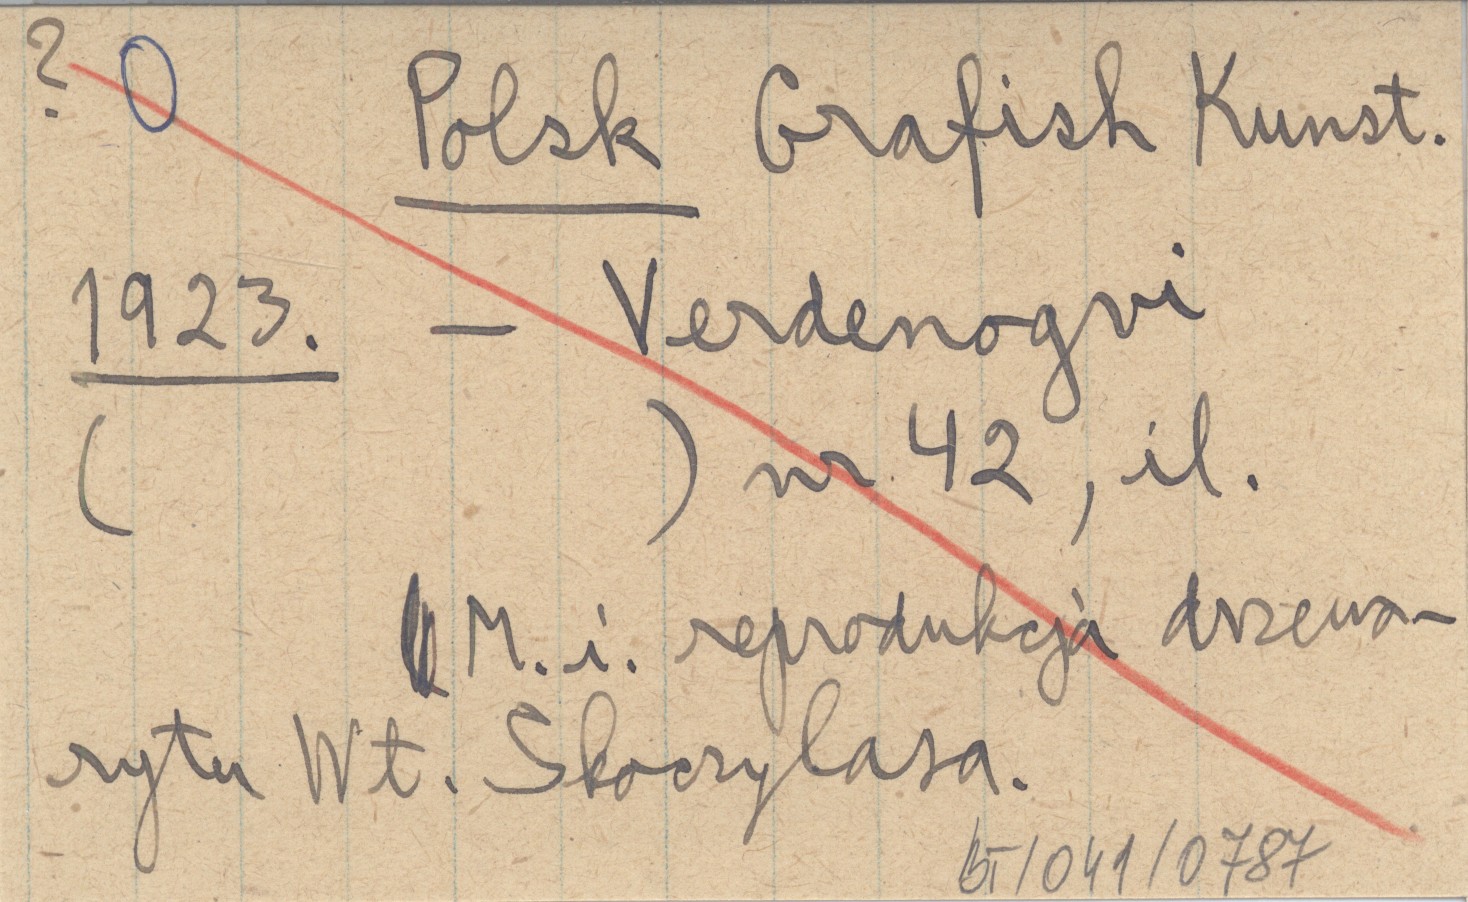 ? 0 Polsk Grafish Kunst.
1923. — Verdenogvi
( ) nr 42, il.
M. i. reprodukcja drzewo-
rytu Wł. Skoczylasa.
BT/041/0787